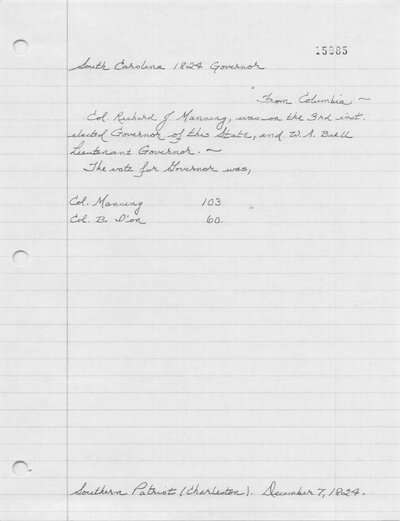 15985
South Carolina 1824 Governor
"From Columbia ~
Col Richard J Manning, was on the 3rd inst.
elected Governor of this State, and W. A. Bull
Lieutenant Governor. ~
The vote for Governor was,
Col. Manning 103 "
Col. B. I'on 60.
Southern Patriot (Charleston). December 7, 1824.